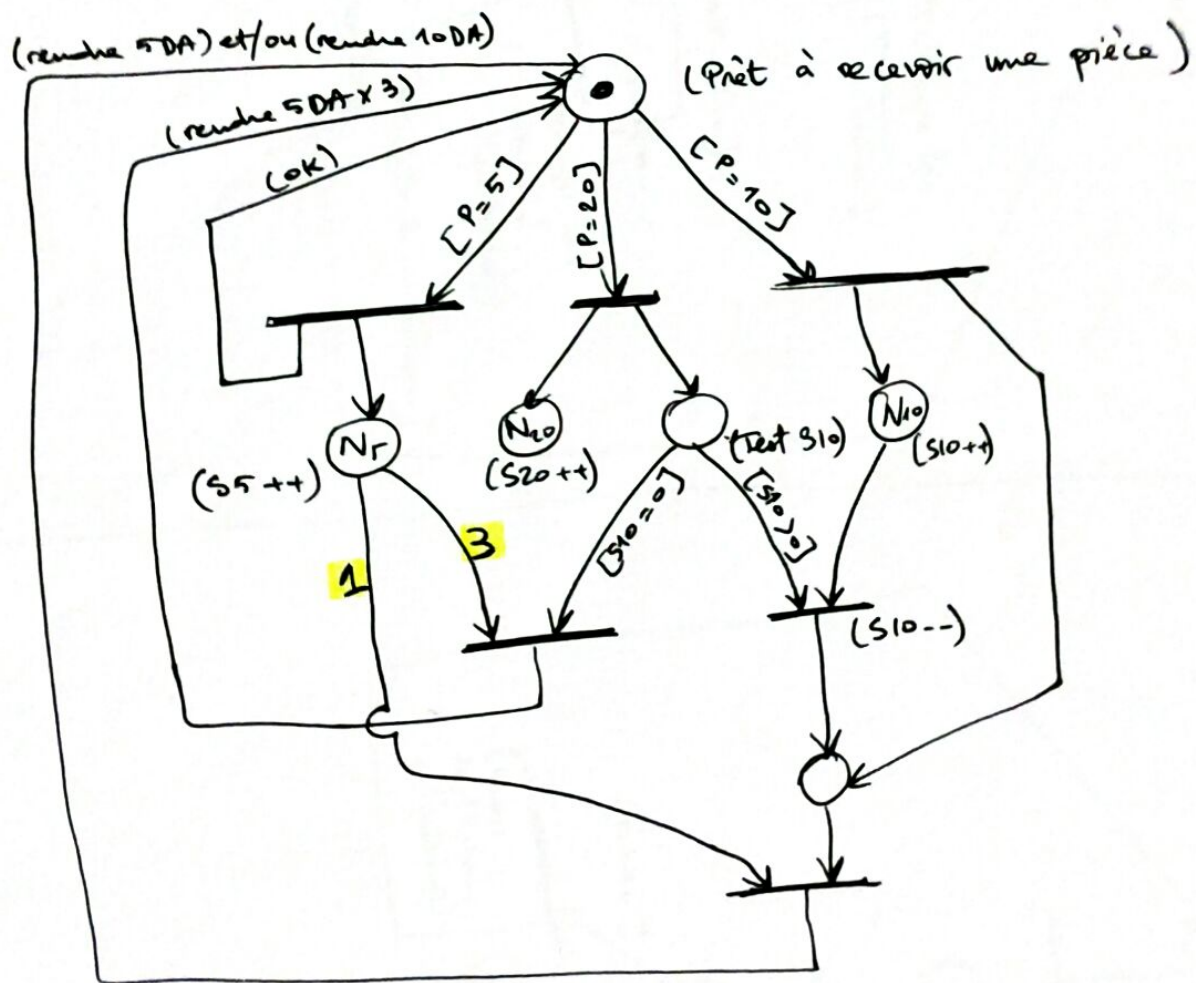 (rendre 5DA) et/ou (rendre 10DA)
(Prêt à recevoir une pièce)
(rendre 5DA x 3)
(OK)
[P=5]
[P=20]
[P=10]
N5
(S5++)
N20
(S20++)
(Test S10)
N10
(S10++)
[S10=0]
[S10>0]
3
1
(S10--)